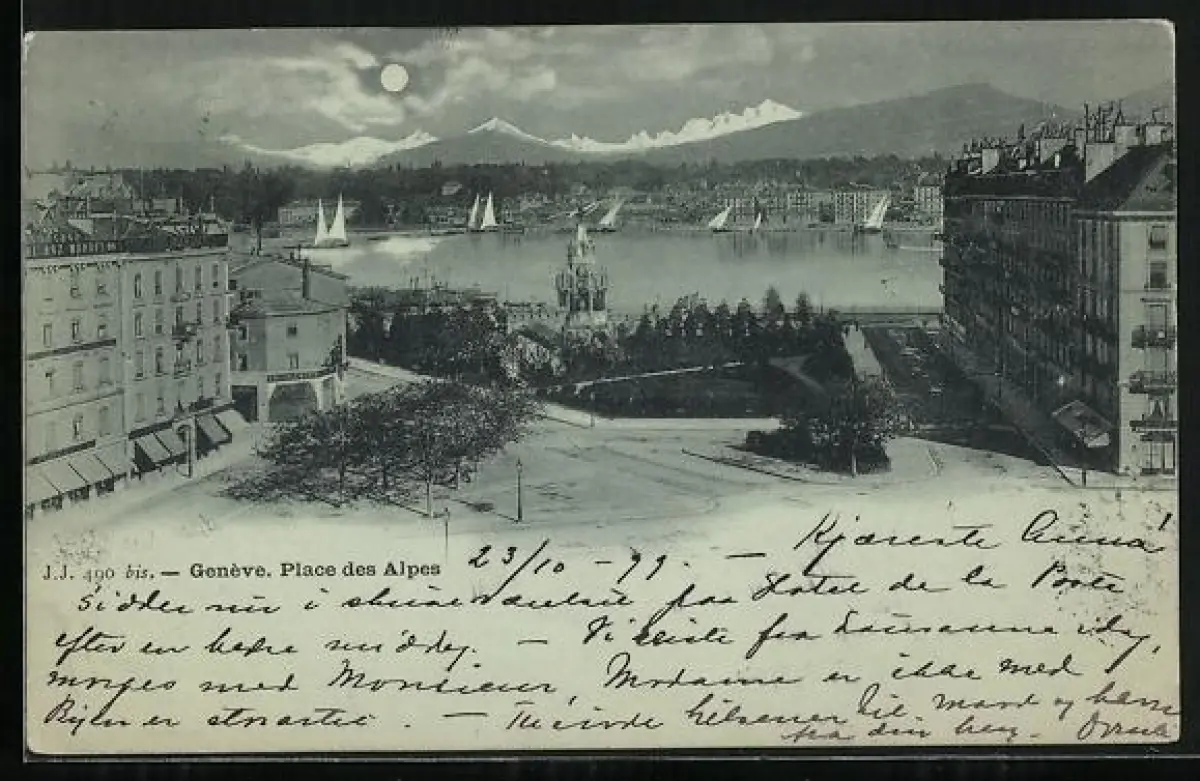 J.J. 490 bis. — Genève. Place des Alpes
23/10 - 99. — Kjæreste Anna!
Sidder nu i skriveværelset paa Hotel de la Poste
efter en bedre middag. — Vi reiste fra Lausanne idag,
morges med Monsieur, Madame er ikke med
Byen er
hilsener til mand og børn
fra din